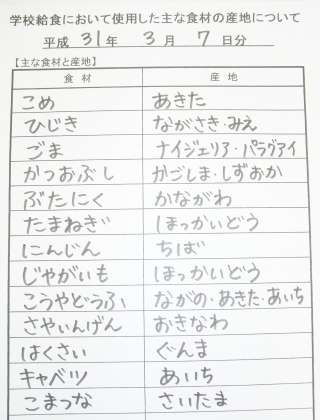 学校給食において使用した主な食材の産地について
平成 31 年 3 月 7 日分
【主な食材と産地】
食材 産地
こめ あきた
ひじき ながさき・みえ
ごま ナイジェリア・パラグアイ
かつおぶし かごしま・しずおか
ぶたにく かながわ
たまねぎ ほっかいどう
にんじん ちば
じゃがいも ほっかいどう
こうやどうふ ながの・あきた・あいち
さやいんげん おきなわ
はくさい ぐんま
キャベツ あいち
こまつな さいたま